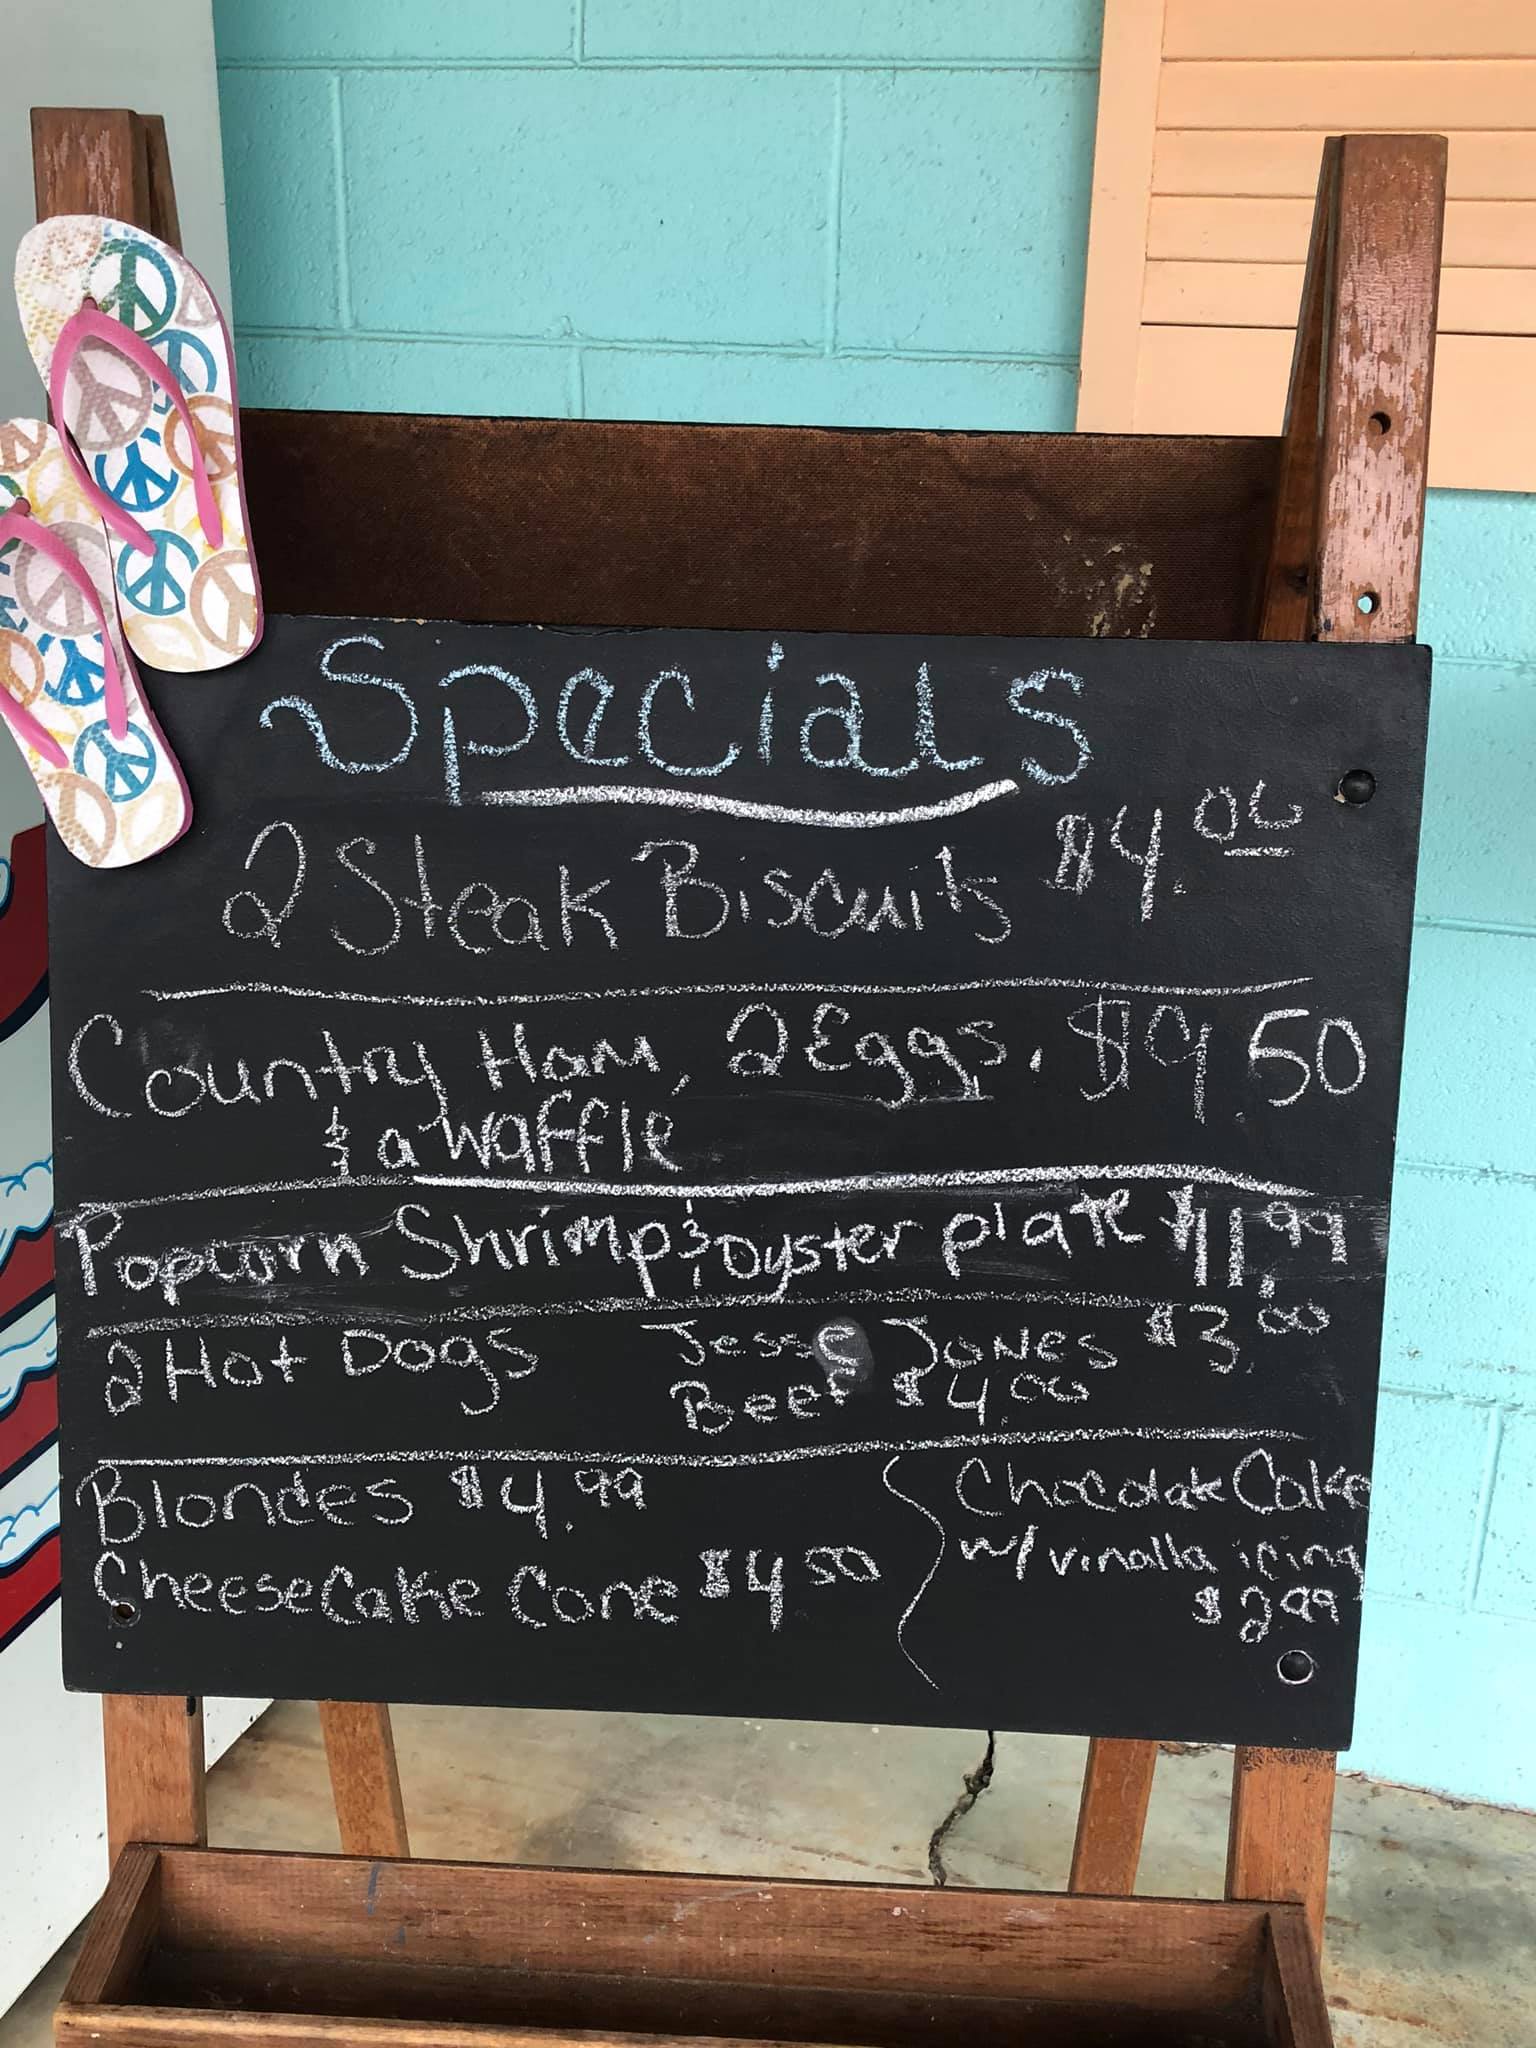 Specials
2 Steak Biscuits $4.00
Country Ham, 2 Eggs, $9.50
& a waffle
Popcorn Shrimp & oyster plate $11.99
2 Hot Dogs Jesse Jones $3.00
Beef $4.00
Blondes $4.99
CheeseCake Cone $4.50
Chocolate Cake
w/ vinalla icing
$2.99